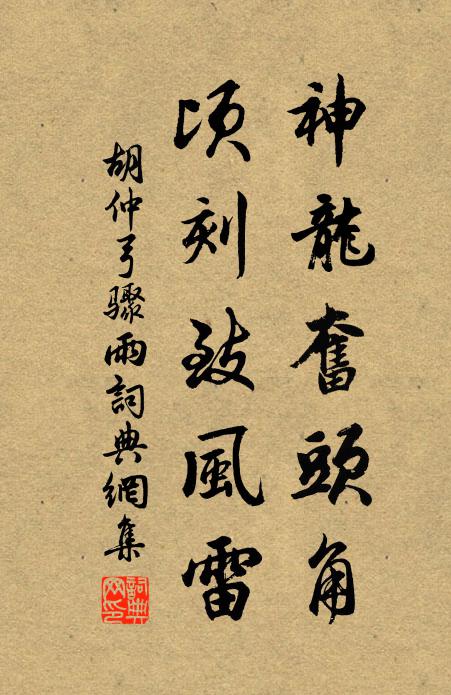 神龍奮頭角
頃刻致風雷
胡仲弓驟雨詞典網集
詞典網印